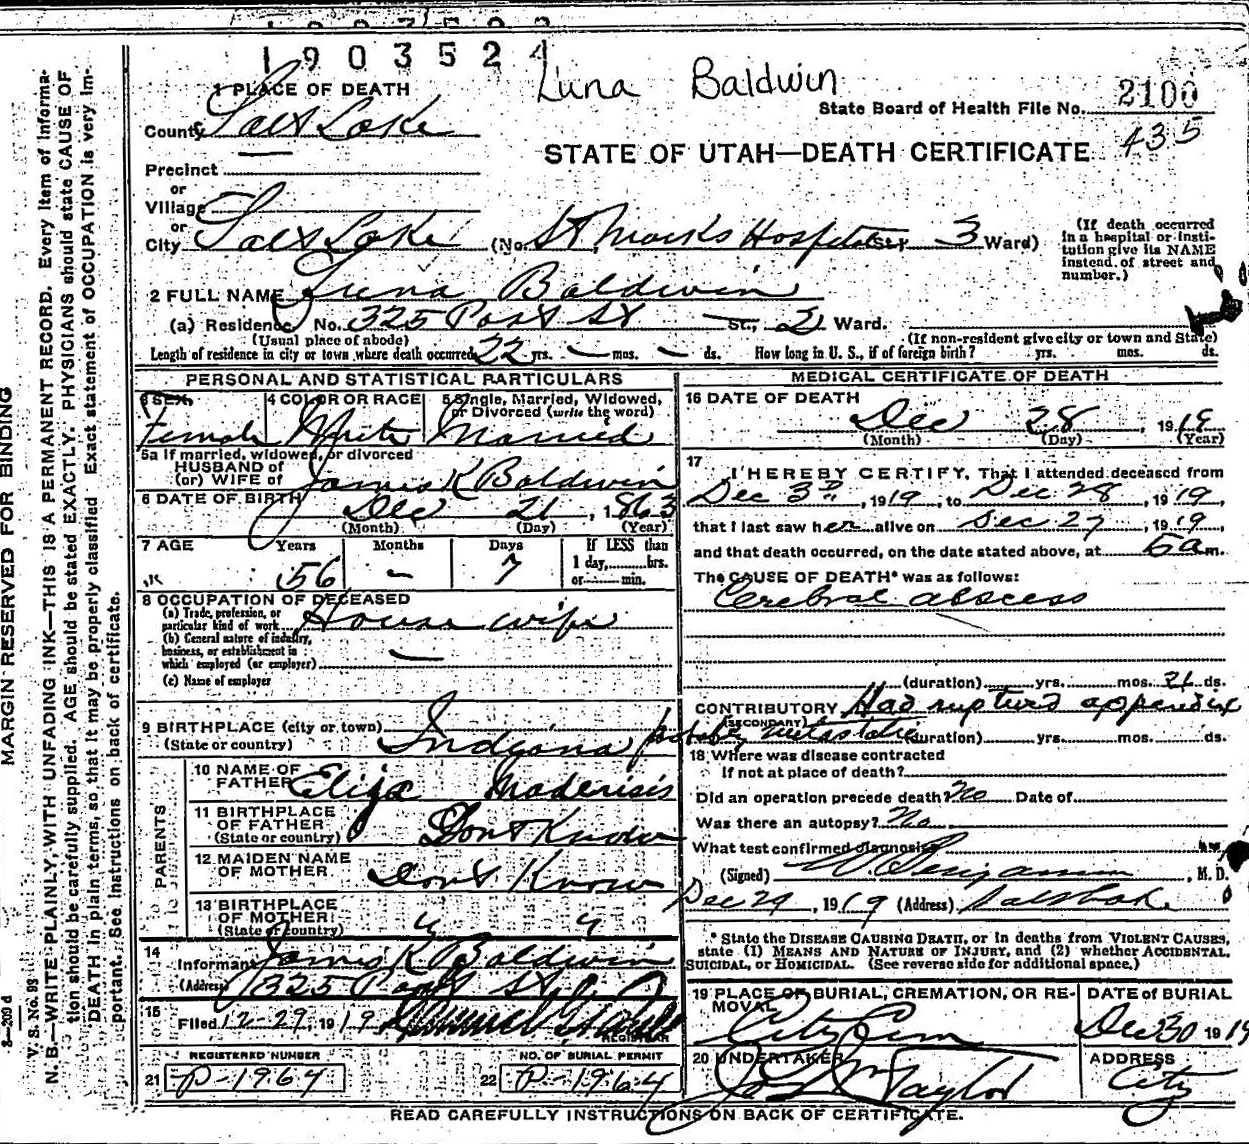 1903524
Luna Baldwin
2100
State Board of Health File No.
435
STATE OF UTAH—DEATH CERTIFICATE
1 PLACE OF DEATH
County Salt Lake
Precinct
or
Village
or
City Salt Lake (No. St Marks Hospital St., 3 Ward)
(If death occurred in a hospital or institution give its NAME instead of street and number.)
2 FULL NAME Luna Baldwin
(a) Residence, No. 325 Post St St., 2 Ward.
(Usual place of abode) (If non-resident give city or town and State)
Length of residence in city or town where death occurred 22 yrs. — mos. — ds. How long in U. S., if of foreign birth? yrs. mos. ds.
PERSONAL AND STATISTICAL PARTICULARS
3 SEX 4 COLOR OR RACE 5 Single, Married, Widowed, or Divorced (write the word)
Female White Married
5a If married, widowed, or divorced
HUSBAND of
(or) WIFE of James K Baldwin
6 DATE OF BIRTH Dec 21, 1863
(Month) (Day) (Year)
7 AGE Years Months Days If LESS than
1 day, hrs.
56 — 7 or min.
8 OCCUPATION OF DECEASED
(a) Trade, profession, or particular kind of work House wife
(b) General nature of industry, business, or establishment in which employed (or employer) —
(c) Name of employer
9 BIRTHPLACE (city or town)
(State or country) Indiana
PARENTS
10 NAME OF FATHER Elija
11 BIRTHPLACE OF FATHER (State or country) Dont Know
12 MAIDEN NAME OF MOTHER Dont Know
13 BIRTHPLACE OF MOTHER (State or country) " "
14 Informant James K Baldwin
(Address) 325 Post St
15 Filed 12-29, 1919
REGISTRAR
REGISTERED NUMBER NO. OF BURIAL PERMIT
21 P-1964 22 P-1964
MEDICAL CERTIFICATE OF DEATH
16 DATE OF DEATH
Dec 28, 1919
(Month) (Day) (Year)
17 I HEREBY CERTIFY, That I attended deceased from
Dec 3D, 1919, to Dec 28, 1919
that I last saw her alive on Dec 27, 1919,
and that death occurred, on the date stated above, at 5 a m.
The CAUSE OF DEATH* was as follows:
Cerebral abscess
(duration) yrs. mos. 21 ds.
CONTRIBUTORY Had ruptured appendix
(SECONDARY)
probably metastatic (duration) yrs. mos. ds.
18 Where was disease contracted
If not at place of death?
Did an operation precede death? No Date of
Was there an autopsy? No
What test confirmed diagnosis
(Signed) W. Benjamin, M. D.
Dec 29, 1919 (Address) Salt Lake
* State the DISEASE CAUSING DEATH, or in deaths from VIOLENT CAUSES, state (1) MEANS AND NATURE OF INJURY, and (2) whether ACCIDENTAL, SUICIDAL, or HOMICIDAL. (See reverse side for additional space.)
19 PLACE OF BURIAL, CREMATION, OR REMOVAL DATE OF BURIAL
City Cem Dec 30 1919
20 UNDERTAKER ADDRESS
Taylor City
READ CAREFULLY INSTRUCTIONS ON BACK OF CERTIFICATE.
MARGIN RESERVED FOR BINDING
N. B.—WRITE PLAINLY, WITH UNFADING INK—THIS IS A PERMANENT RECORD. Every item of information should be carefully supplied. AGE should be stated EXACTLY. PHYSICIANS should state CAUSE OF DEATH in plain terms, so that it may be properly classified. Exact statement of OCCUPATION is very important. See instructions on back of certificate.